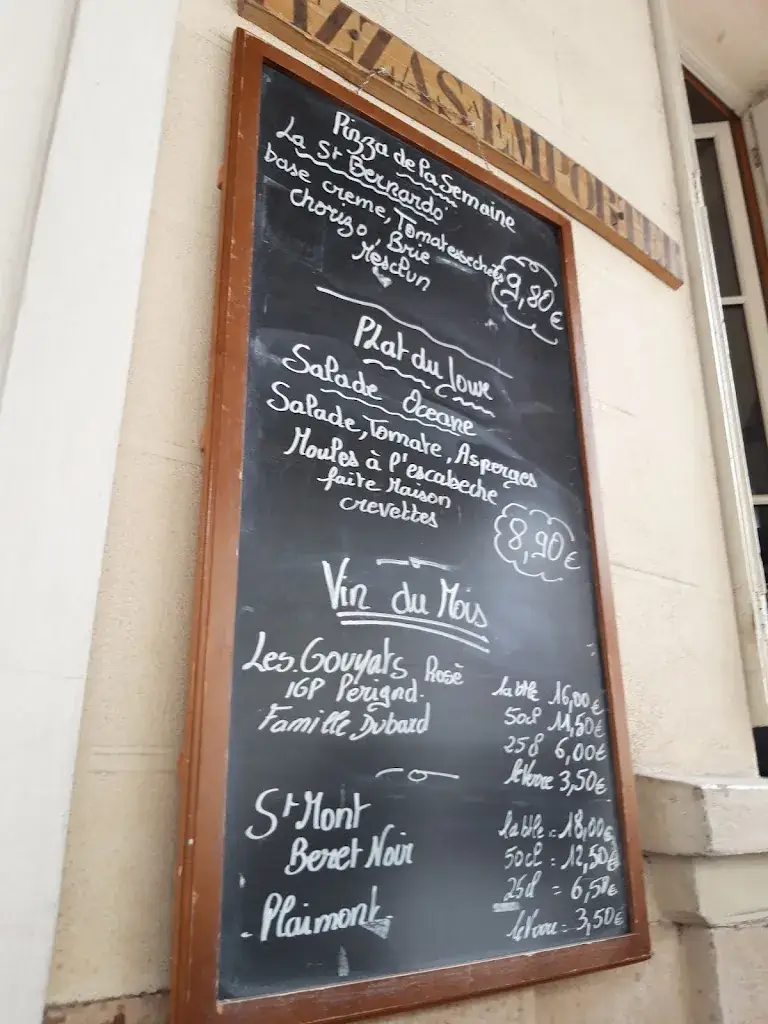 ZZAS A EMPORTER
Pizza de la Semaine
La St Bernardo
base creme, Tomates sechées
chorizo, Brie
Mesclun
9,80€
Plat du Jour
Salade Oceane
Salade, Tomate, Asperges
Moules à l'escabeche
faite Maison
crevettes
8,90€
Vin du Mois
Les Gouyats Rosé
IGP Périgord.
Famille Dubard
la btlle 16,00€
50cl 11,50€
25cl 6,00€
le Verre 3,50€
St Mont
Beret Noir
Plaimont
la btlle = 18,00€
50cl = 12,50€
25cl = 6,50€
le Verre = 3,50€